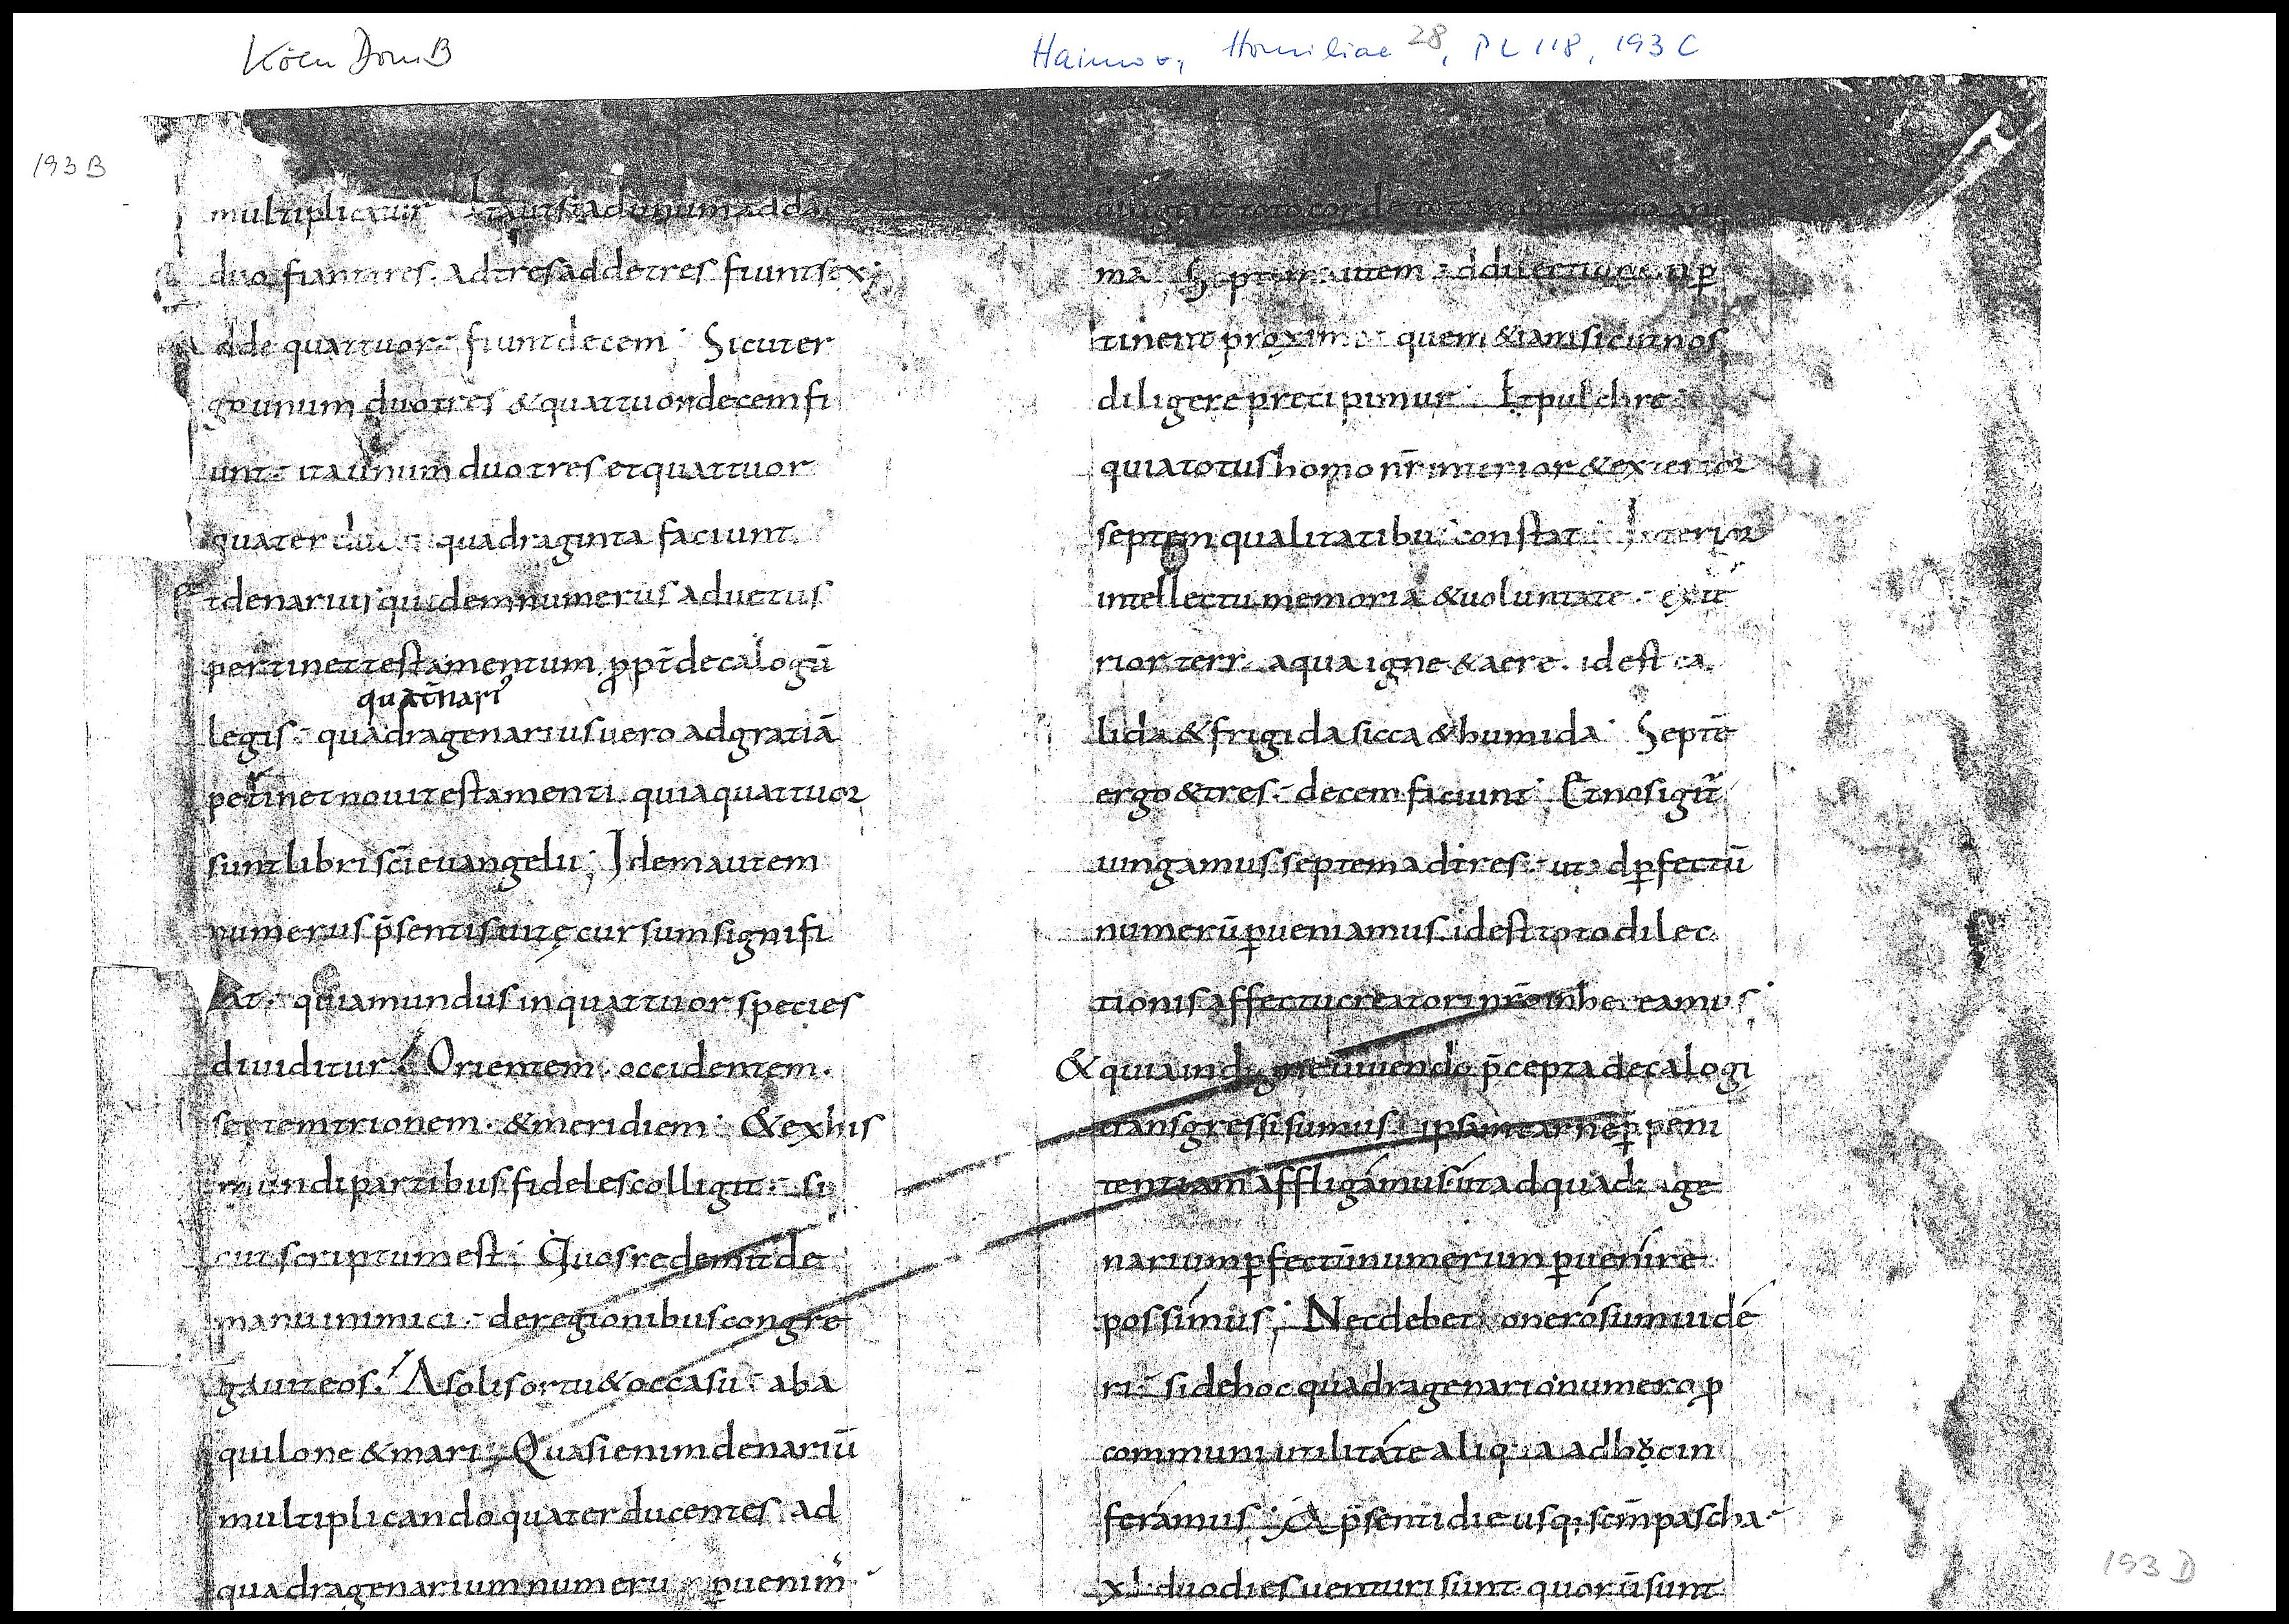 Köln DomB
Haimo v., Homiliae 28, PL 118, 193 C
193 B
multiplicatur
duo fiant tres. Ad tres adde tres fiunt sex;
dde quattuor fiunt decem Sicut er
go unum duo tres & quattuor decem fi
unt ita unum duo tres et quattuor
quater quadraginta faciunt.
et denarius quidem numerus ad uetus
pertinet testamentum ꝓpt̄ decalogū
quat̄nari᾿
legis quadragenarius uero ad gratiā
pertinet noui testamenti quia quattuor
sunt libri sc̄i euangelii; Idem autem
numerus p̄sentis uitę cursum signifi
at. quia mundus in quattuor species
diuiditur Orientem. occidentem.
septemtrionem. & meridiem & ex his
mundi partibus fideles colligit si
cut scriptum est Quos redemit de
manu inimici. de regionibus congre
gauit eos. A solis ortu & occasu ab a
quilone & mari; Quasi enim denariū
multiplicando quater ducentes ad
quadragenarium numeru ꝑuenim᾿
ma autem
tinent proxim quem & iam sicut nos
diligere precipimur Et pulchre
quia totus homo nr̄ interior & exterior
septem qualitatibus constat Interior
intellectu memoria & uoluntate. exte
rior terr aqua igne & aere. id est ca
lida & frigida sicca & humida Septē
ergo & tres decem faciunt; Et nos igit̄
iungamus septem ad tres ut ad ꝑfectū
numerū ꝑueniamus. id est toto dilec
tionis affectu creatori nr̄o inhereamus
& quia indigne uiuendo p̄cepta decalogi
transgressi sumus ipsum carne ꝑ peni
tentiam affligamus ut ad quadrage
narium ꝑfectū numerum ꝑuenire
possimus; Nec debet onerosum uide
ri si de hoc quadragenario numero ꝓ
communi utilitate aliqua adhoc in
feramus; A p̄senti die usq; scm̄ pascha
xl duo dies uenturi sunt quorū sunt
193 D